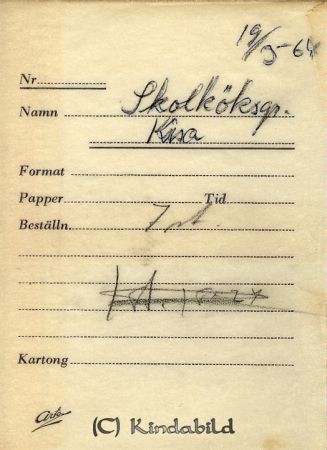 19/5-64
Nr
Namn Skolköksgr.
Kisa
Format
Papper Tid
Beställn. 7 st.
Kartong
Ark
(C) Kindabild